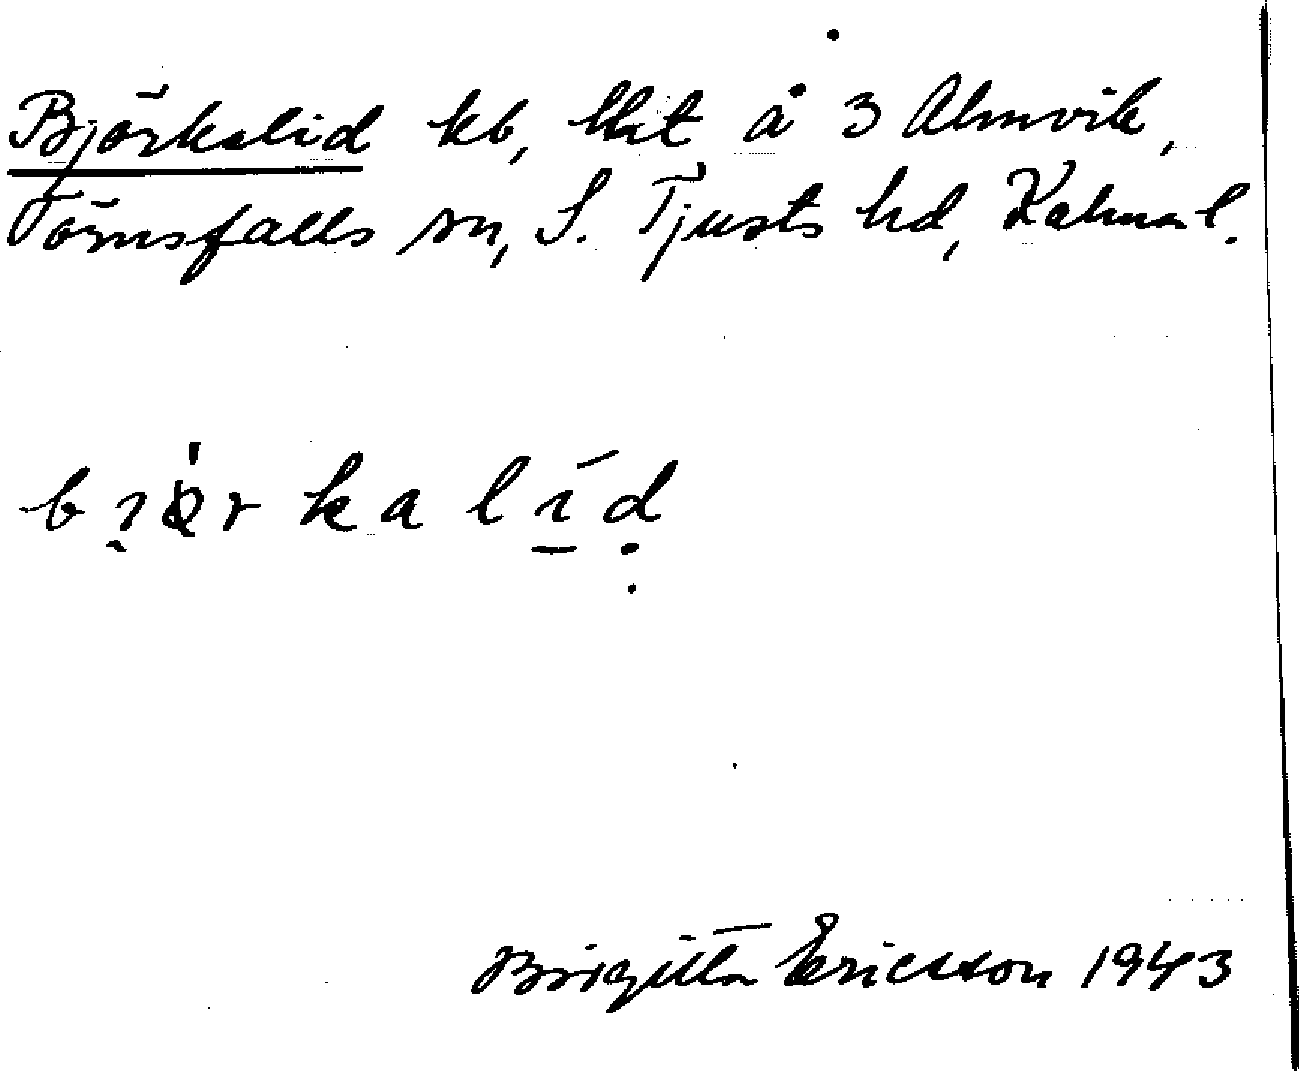 Björkalid kb, lht å 3 Almvik,
Törnsfalls sn, S. Tjusts hd, Kalmar l.
bi̯örkalíd
Birgitta Ericsson 1943